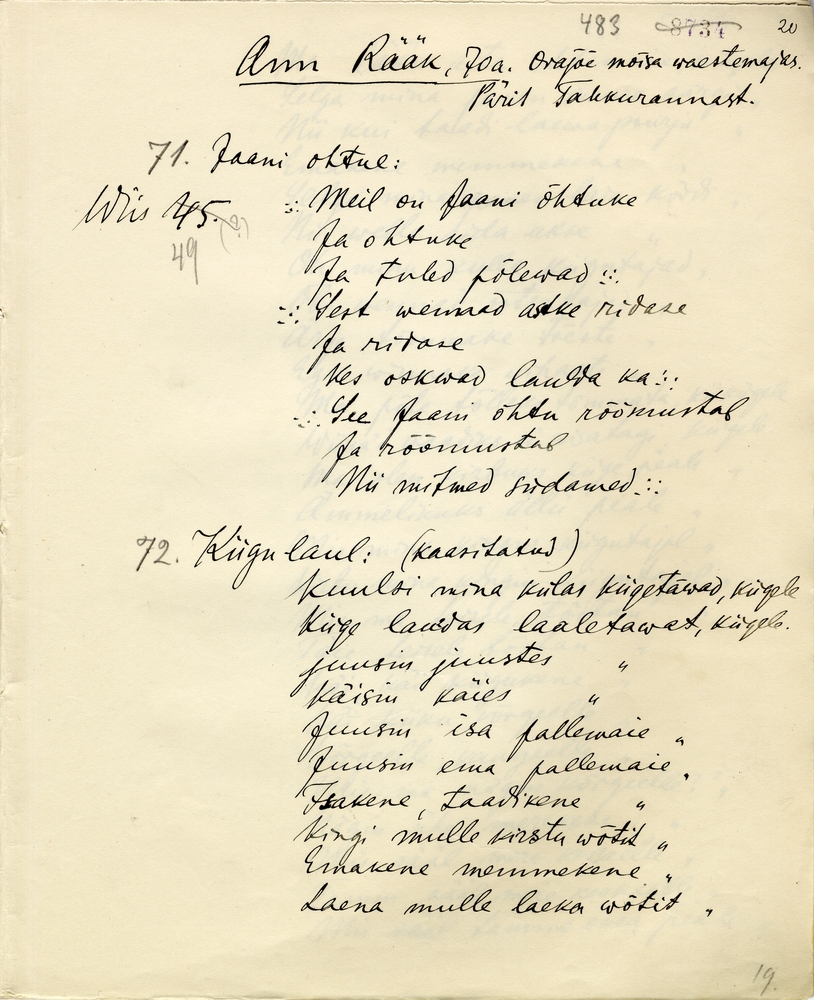 483 8734 20
Ann Rääk, 70a. Orajõe mõisa waestemajas.
Pärit Tahkurannast.
71. Jaani ohtul:
Wiis 45. :: Meil on Jaani õhtuke
49 (?)
Ja ohtuke
Ja tuled põlewad ::
:: Sest wennad astke ridase
Ja ridase
Kes oskwad laulda ka ::
:: See Jaani õhtu rõõmustab
Ja rõõmustab
Nii mitmed südamed ::
72. Kiigulaul: (kaasitatud)
Kuulsi mina külas kiigetäwad, kiigele
Kiige laudas laaletawat, kiigele.
juusin juustes "
Käisin käies "
Juusin isa pallemaie "
Juusin ema pallemaie "
Isakene, taadikene "
Kingi mulle kirstu wõtit "
Emakene memmekene "
Laena mulle laeka wõtit "
19.